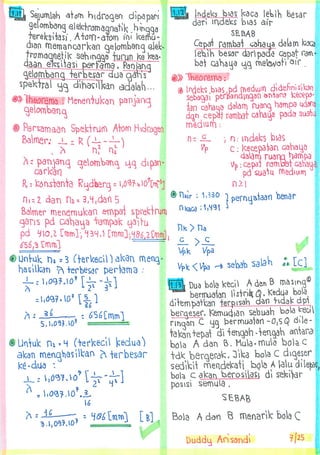 Sejumlah atom hidrogen dipapari
gelombang elektromagnetik hingga
tereksitasi. Atom-atom ini kemu-
dian memancarkan gelombang elek-
tromagnetik sehingga turun ke kea-
daan eksitasi pertama. Panjang
gelombang terbesar dua garis
spektral yg dihasilkan adalah...
Theorema: Menentukan panjang
gelombang
Persamaan Spektrum Atom Hidrogen
Balmer: 1/λ = R (1/n₁² - 1/n₂²)
λ = panjang gelombang yg dipan-
carkan
R = konstanta Rydberg = 1,097×10⁷[m⁻¹]
n₁=2 dan n₂ = 3,4,dan 5
Balmer menemukan empat spektrum
garis pd cahaya tampak yaitu
pd 410,2 [nm]; 434,1 [nm]; 486,2 [nm]
656,3 [nm]
Untuk n₂ = 3 (terkecil) akan meng-
hasilkan λ terbesar pertama :
1/λ = 1,097.10⁷ [1/2² - 1/3²]
= 1,097.10⁷ [5/36]
λ = 36/5.1,097.10⁷ = 656 [nm]
Untuk n₂ = 4 (terkecil kedua)
akan menghasilkan λ terbesar
ke-dua :
1/λ = 1,097.10⁷ [1/2² - 1/4²]
= 1,097.10⁷ . 3/16
λ = 16/3.1,097.10⁷ = 486 [nm] [B]
Indeks bias kaca lebih besar
dari indeks bias air
SEBAB
Cepat rambat cahaya dalam kaca
lebih besar daripada cepat ram-
bat cahaya yg melewati air.
Theorema:
Indeks bias pd medium didefinisikan
sebagai perbandingan antara kecepa-
tan cahaya dalam ruang hampa udara
dgn cepat rambat cahaya pada suatu
medium:
n = c/Vp ; n: indeks bias
c: kecepatan cahaya
dalam ruang hampa
Vp: cepat rambat cahaya
pd suatu medium
n≥1
n air : 1,330
n kaca : 1,491 } pernyataan benar
nk > na
c/Vpk > c/Vpa
Vpk < Vpa → sebab salah ∴ [C]
Dua bola kecil A dan B masing²
bermuatan listrik Q. Kedua bola
ditempatkan terpisah dan tidak dpt
bergeser. Kemudian sebuah bola kecil
ringan C yg bermuatan -0,5Q dile-
takan tepat di tengah-tengah antara
bola A dan B. Mula-mula bola C
tdk bergerak. Jika bola C digeser
sedikit mendekati bola A lalu dilepas,
bola C akan berosilasi di sekitar
posisi semula.
SEBAB
Bola A dan B menarik bola C
Duddy Arisandi 7/25